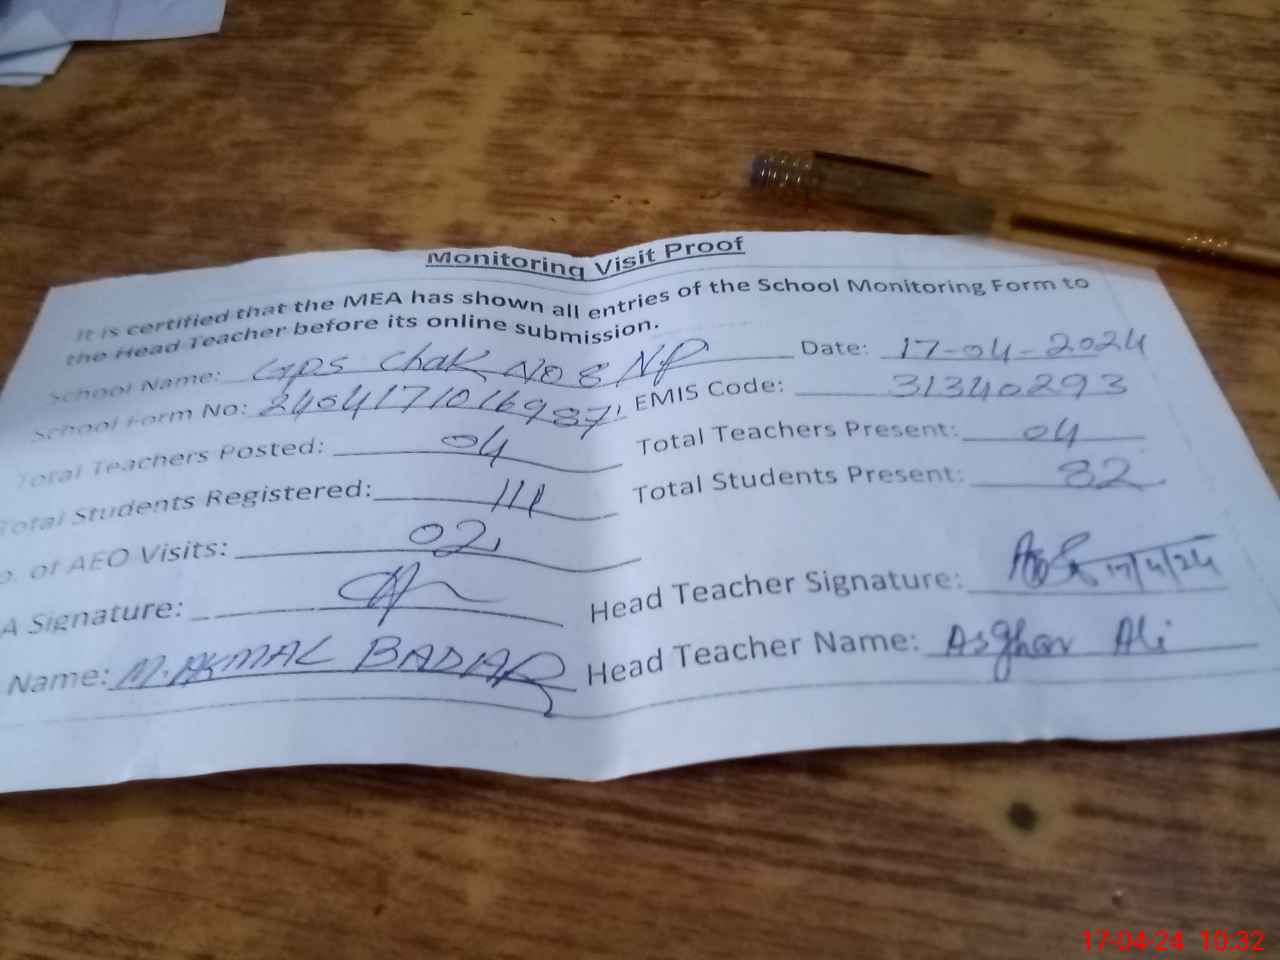 Monitoring Visit Proof
It is certified that the MEA has shown all entries of the School Monitoring Form to
the Head Teacher before its online submission.
School Name: GPS Chak No 8 NP Date: 17-04-2024
School Form No: 2404171016987, EMIS Code: 31340293
Total Teachers Posted: 04 Total Teachers Present: 04
Total Students Registered: 111 Total Students Present: 82
o. of AEO Visits: 02
A Signature: Head Teacher Signature: 17/4/24
Name: M. AKMAL BADAR Head Teacher Name: Asghar Ali
17-04-24 10:32